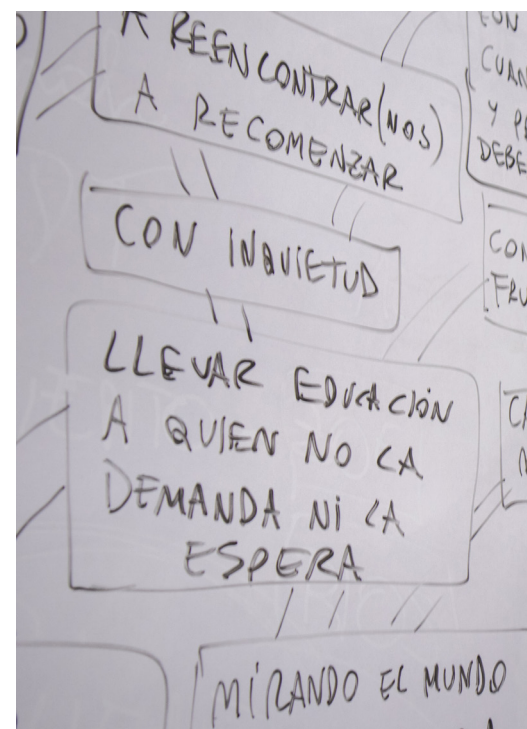 A REENCONTRAR(NOS)
A RECOMENZAR
CON INQUIETUD
LLEVAR EDUCACIÓN
A QUIEN NO LA
DEMANDA NI LA
ESPERA
MIRANDO EL MUNDO
CUAN
Y
DEBE
CON